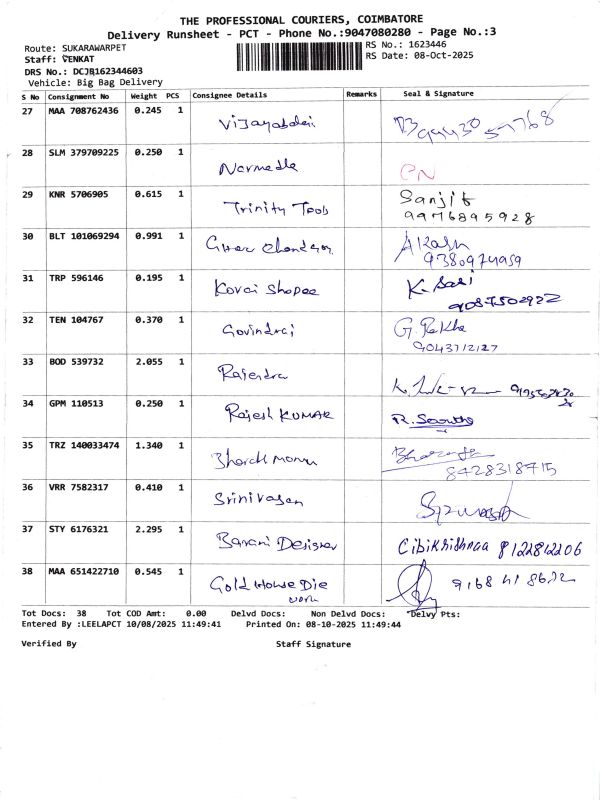 THE PROFESSIONAL COURIERS, COIMBATORE
Delivery Runsheet - PCT - Phone No.:9047080280 - Page No.:3
Route: SUKARAWARPET
RS No.: 1623446
Staff: VENKAT
RS Date: 08-Oct-2025
DRS No.: DCJB162344603
Vehicle: Big Bag Delivery
S No Consignment No Weight PCS Consignee Details Remarks Seal & Signature
27 MAA 708762436 0.245 1
28 SLM 379709225 0.250 1
29 KNR 5706905 0.615 1 Trinity Tools Sanjit
9976895928
30 BLT 101069294 0.991 1 Akash
9380974959
31 TRP 596146 0.195 1 Kovai Shopee K. Sasi
32 TEN 104767 0.370 1 Govindraj G. Rekha
9043712127
33 BOD 539732 2.055 1 Rajendra
34 GPM 110513 0.250 1 Rajesh KUMAR
35 TRZ 140033474 1.340 1
8428318715
36 VRR 7582317 0.410 1 Srinivasan
37 STY 6176321 2.295 1 Barani Designer Cibikrishnaa 8122812206
38 MAA 651422710 0.545 1 Gold House Die
work
Tot Docs: 38 Tot COD Amt: 0.00 Delvd Docs: Non Delvd Docs: Delvy Pts:
Entered By :LEELAPCT 10/08/2025 11:49:41 Printed On: 08-10-2025 11:49:44
Verified By Staff Signature